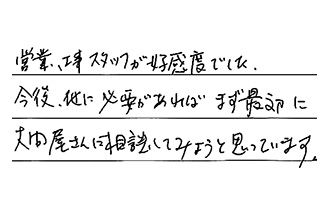 営業、工事スタッフが好感度でした。
今後、他に必要があればまず最初に
大向屋さんに相談してみようと思っています。